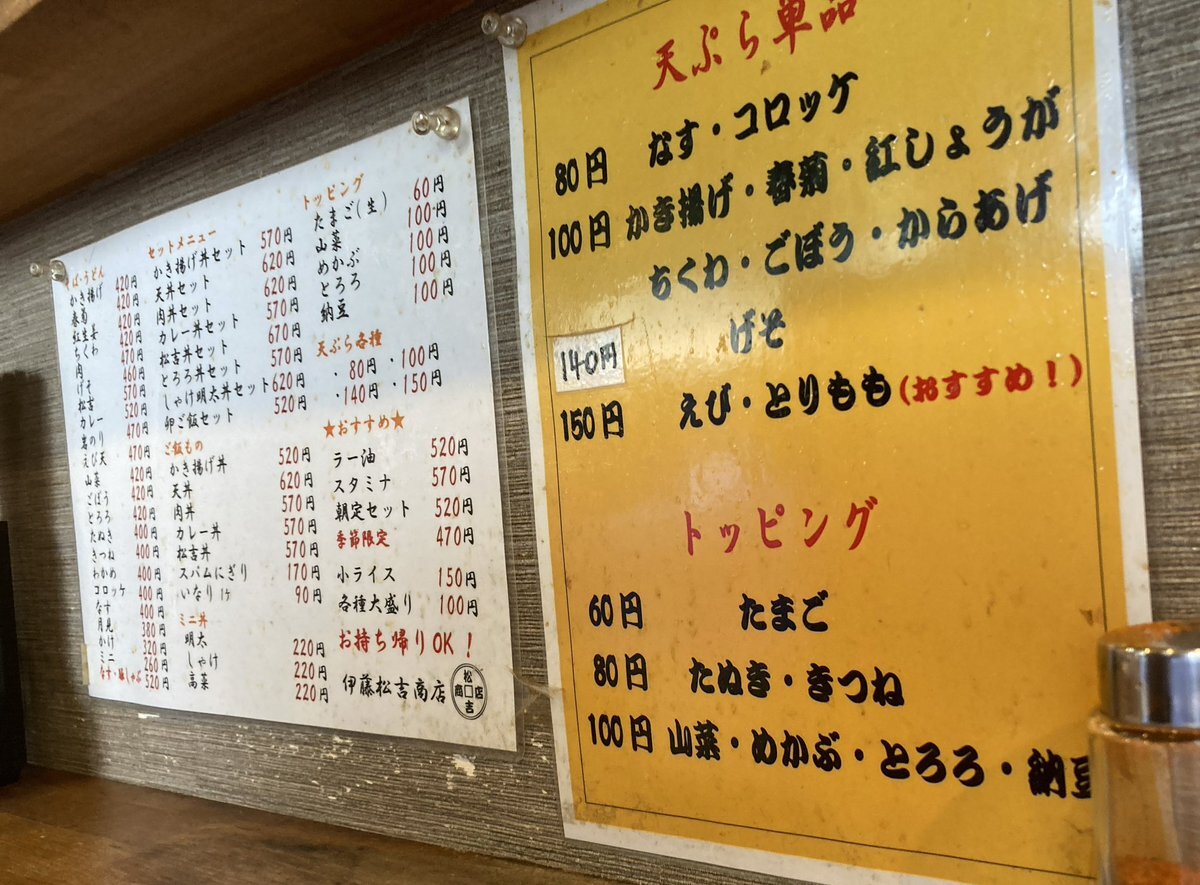 ば・うどん
かき揚げ 420円
春菊 420円
紅生姜 420円
ちくわ 420円
肉 470円
げそ 460円
松吉 570円
カレー 520円
岩のり
えび天 470円
山菜 420円
ごぼう 420円
とろろ 420円
たぬき 400円
きつね 400円
わかめ 400円
コロッケ 400円
なす 400円
月見 380円
かけ 320円
ミニ 260円
なす・豚しゃぶ 520円
セットメニュー
かき揚げ丼セット 570円
天丼セット 620円
肉丼セット 620円
カレー丼セット 570円
松吉丼セット 670円
とろろ丼セット 570円
しゃけ明太丼セット 620円
卵ご飯セット 520円
ご飯もの
かき揚げ丼 520円
天丼 620円
肉丼 570円
カレー丼 570円
松吉丼 570円
スパムにぎり 170円
いなり 1ケ 90円
ミニ丼
明太 220円
しゃけ 220円
高菜 220円
トッピング
たまご(生) 60円
山菜 100円
めかぶ 100円
とろろ 100円
納豆 100円
天ぷら各種
・80円 ・100円
・140円 ・150円
★おすすめ★
ラー油 520円
スタミナ 570円
朝定セット 520円
季節限定 470円
小ライス 150円
各種大盛り 100円
お持ち帰りOK！
伊藤松吉商店
松
商□店
吉
天ぷら単品
80円 なす・コロッケ
100円 かき揚げ・春菊・紅しょうが
ちくわ・ごぼう・からあげ
140円 げそ
150円 えび・とりもも(おすすめ！)
トッピング
60円 たまご
80円 たぬき・きつね
100円 山菜・めかぶ・とろろ・納豆